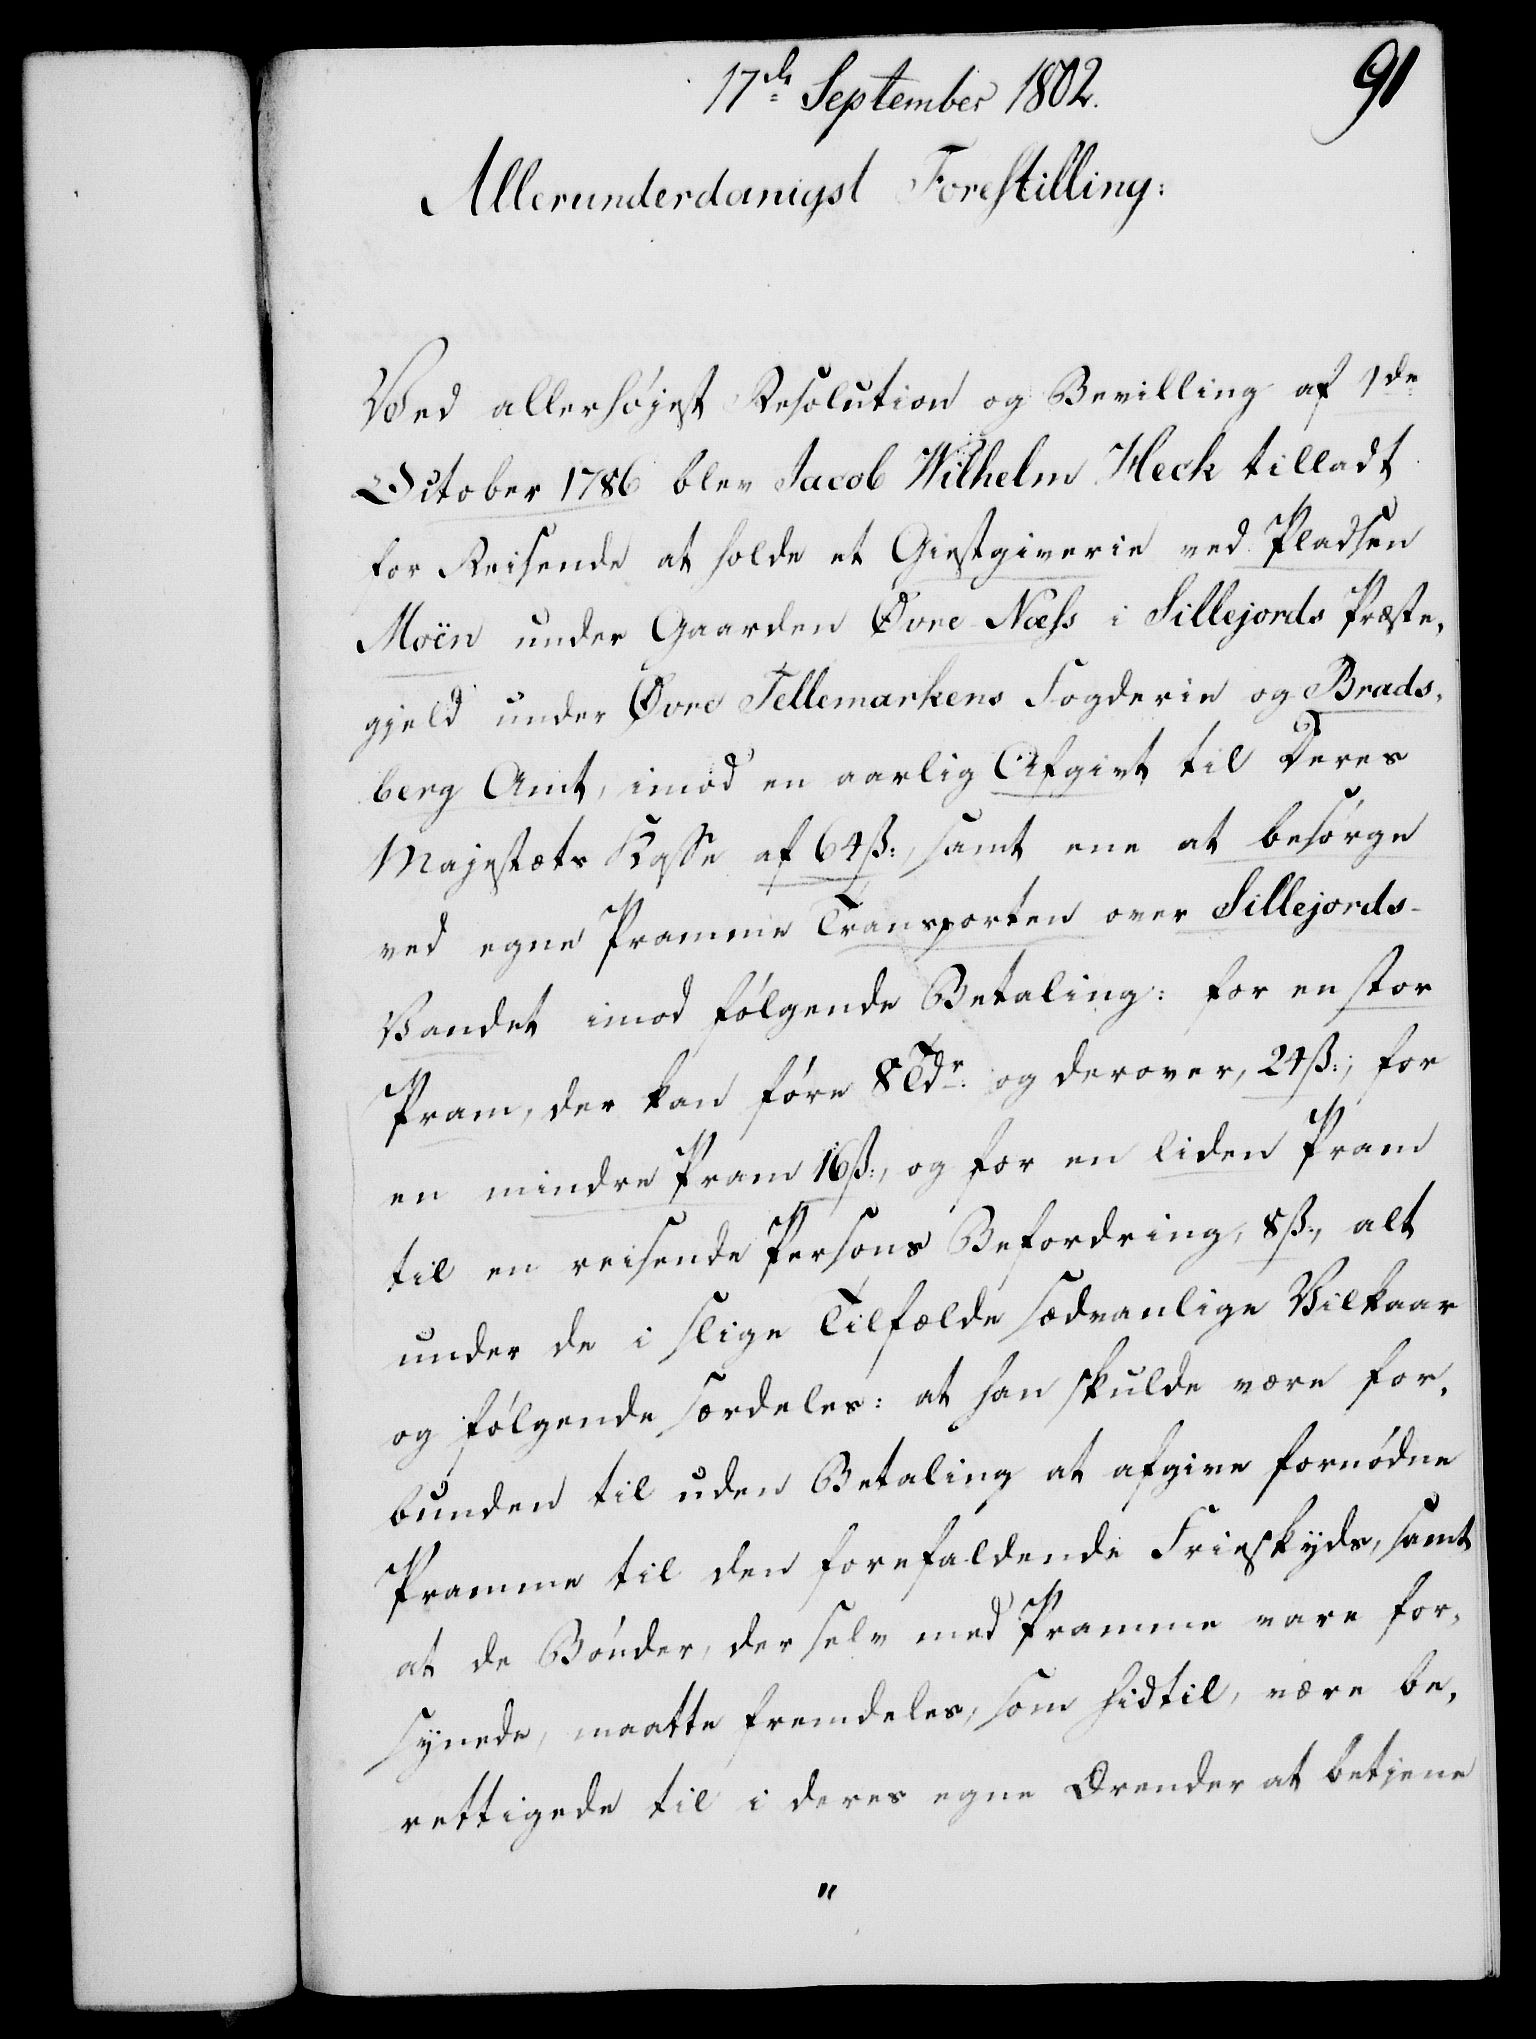 17de September 1802.
91
Allerunderdanigst Forestilling:
Ved allerhøjest Resolution og Bevilling af 1de
October 1786 blev Jacob Wilhelm Heck tilladt
for Reisende at holde et Giestgiverie ved Pladsen
Moën under Gaarden Øvre Næss i Sillejords Præste,
gjeld under Øvre Tellemarkens Fogderie og Brads,
berg Amt, imod en aarlig Afgivt til Deres
Majestæts Kasse af 64ß:, samt ene at besørge
ved egne Pramme Transporten over Sillejords-
Vandet imod følgende Betaling: for en stor
Pram, der kan føre 8 Tdr. og derover, 24ß:; for
en mindre Pram 16ß:, og for en liden Pram
til en reisende Persons Befordring, 8ß., alt
under de i slige Tilfælde sædvanlige Vilkaar
og følgende særdeles: at han skulde være for,
bunden til uden Betaling at afgive fornødne
Pramme til den forefaldende Frieskyds, samt
at de Bønder, der selv med Pramme vare for,
synede, maatte fremdeles, som hidtil, være be,
rettigede til i deres egne Ærender at betjene
"